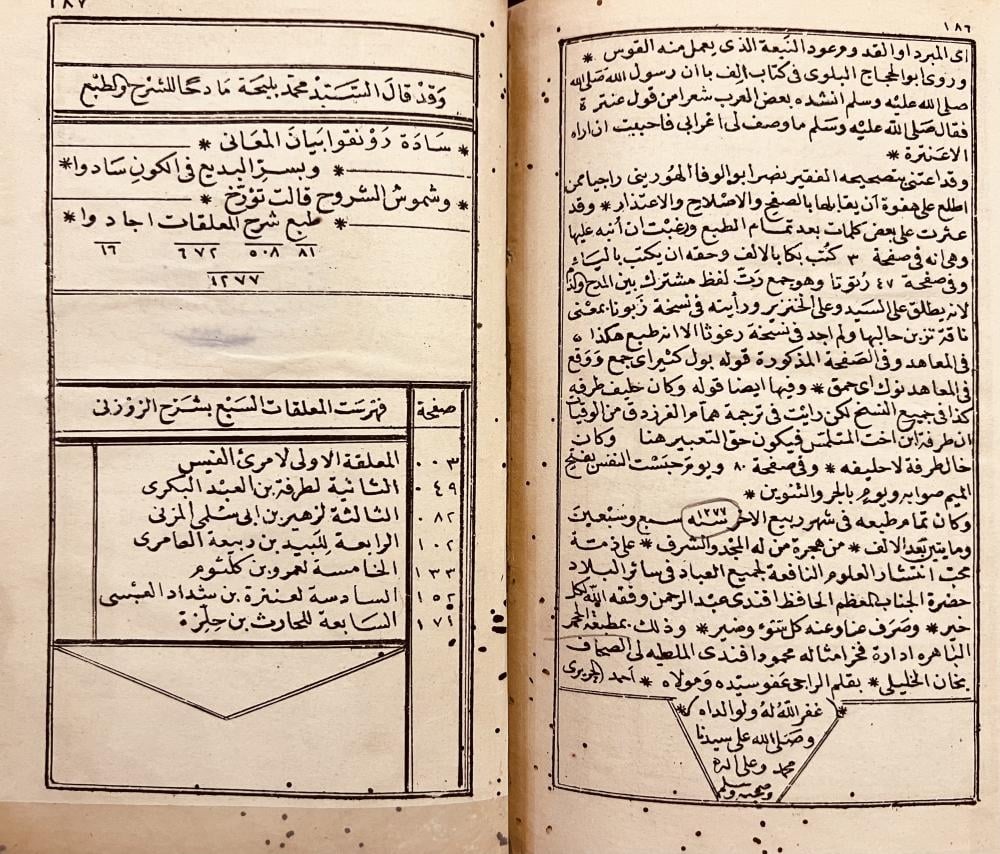 ١٨٦
اى المبرد او القد وهو عود النبعة الذى يعمل منه القوس *
وروى ابو الحجاج البلوى فى كتاب الف با ان رسول الله صلى الله
صلى الله عليه وسلم انشده بعض العرب شعرا من قول عنترة
فقال صلى الله عليه وسلم ما وصف لى اعرابى فاحببت ان اراه
الا عنترة *
وقد اعتنى بتصحيحه الفقير نصر ابو الوفا الهورينى راجيا ممن
اطلع على هفوة أن يقابلها بالصفح والاصلاح والاعتذار * وقد
عثرت على بعض كلمات بعد تمام الطبع ورغبت ان أنبه عليها
وهى انه فى صفحة ٣ كُتب بكا بالالف وحقه ان يكتب بالياء
وفى صفحة ٤٧ رُتوتا وهو جمع رَتّ لفظ مشترك بين المدح والذم
لانه يطلق على السيد وعلى الخنزير ورأيته فى نسخة زَبونا بمعنى
ناقة تزبن حالبها ولم اجد فى نسخة رغوثا الا انه طبع هكذا
فى المعاهد وفى الصفحة المذكورة قوله بول كثير اى جمع ووقع
فى المعاهد نوك اى حمق * وفيها ايضا قوله وكان خليف طرفه
كذا فى جميع النسخ لكن رأيت فى ترجمة همام الفرزدق من الوفيات
ان طرفة ابن اخت المتلمس فيكون حق التعبير هنا وكان
خال طرفة لا حليفه * وفى صفحة ٨٠ ويوم حبست النفس بفتح
الميم صوابه ويومٍ بالجر والتنوين *
وكان تمام طبعه فى شهر ربيع الاخر سنه ١٢٧٧ سبع وسبعين
ومايتين بعد الالف * من هجرة من له المجد والشرف * على ذمة
محب انتشار العلوم النافعة لجميع العباد فى سائر البلاد
حضرة الجناب المعظم الحافظ افندى عبد الرحمن وفقه الله لكل
خير * وصرف عنا وعنه كل سوء وضير * وذلك بمطبعة الحجر
الباهره ادارة فخر امثاله محمود افندى الملطيه لى الصحاف
بخان الخليلى * بقلم الراجى عفو سيده ومولاه * احمد الحريرى
* غفر الله له ولوالداه *
وصلى الله على سيدنا
محمد وعلى اله
وصحبه وسلم
١٨٧
وَقَدْ قالَ السَّيِّد محمّد بليحة مادحًا للشرح والطبع
* سَادَة رَوْنقوا بيَانَ المعَانى *
* وبسرّ البديع فى الكونِ سَادوا *
* وشموسُ الشروح قالت تؤرّخ *
* طبع شرح المعلقات اجادوا *
٨١ ٥٠٨ ٦٧٢ ١٦
١٢٧٧
صفحة فهرست المعلقات السبع بشرح الزوزنى
٠٠٣ المعلقة الاولى لامرئ القيس
٠٤٩ الثانية لطرفة بن العبد البكرى
٠٨٢ الثالثة لزهير بن ابى سُلمى المزنى
١٠٢ الرابعة للبيد بن ربيعة العامرى
١٣٣ الخامسة لعمرو بن كلثوم
١٥٢ السادسة لعنترة بن شداد العبسى
١٧١ السابعة للحارث بن حِلِزة